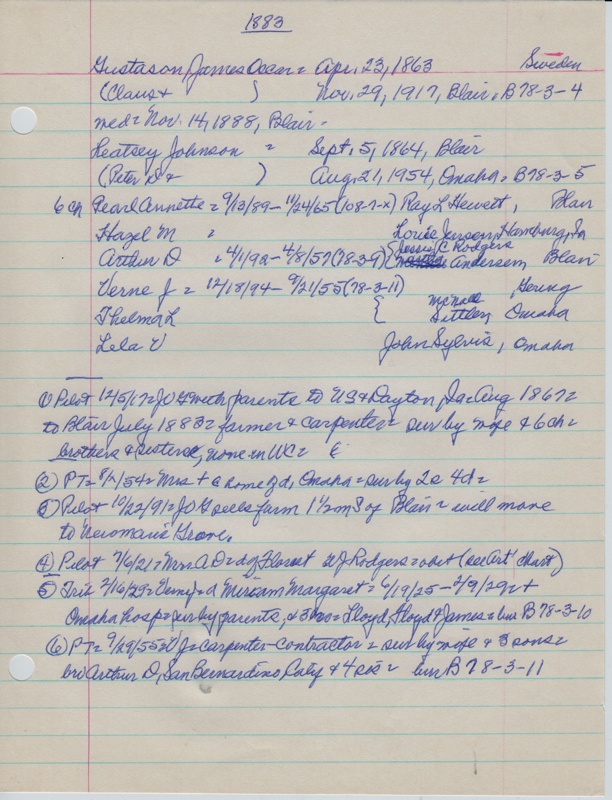 1883
Gustason, James Oscar = Apr. 23, 1863 Sweden
(Claus + ) Nov. 29, 1917, Blair = B78-3-4
med = Nov. 14, 1888, Blair -
Leatsey Johnson = Sept. 5, 1864, Blair
(Peter D + ) Aug. 21, 1954, Omaha = B78-3-5
6 ch Pearl Annette = 9/13/89 - 11/24/65 (108-7-X) Ray L Hewett, Blair
Hazel M = Louie Jensen, Hamburg, Ia
Arthur D = 4/1/92 - 4/8/57 (78-3-9) { Jessie C Rodgers
Andersen, Blair
Verne J = 12/18/94 - 9/21/55 (78-3-11) Gering
Thelma L { McNall
Sittler, Omaha
Lela V John Sylvis, Omaha
① Pilot 12/5/17 = JOG with parents to US & Dayton, Ia = Aug 1867 =
to Blair July 1883 = farmer & carpenter = sur by wife & 6 ch =
brothers & sisters, none in WC =
② PT = 8/ /54 = Mrs + @ home of d, Omaha = sur by 2s 4d =
③ Pilot 10/22/91 = JOG sells farm 1½ m S of Blair = will move
to Newman's Grove.
④ Pilot 7/6/21 = Mrs A D = d of Flor & J Rodgers = obit (see Art' chart)
⑤ Trib 2/16/29 = Verne J = d Miriam Margaret = 6/19/25 - 2/9/29 = +
Omaha hosp = sur by parents, & 3 bro = Lloyd, Floyd & James = bur B78-3-10
⑥ PT = 9/29/55 = V J = carpenter-contractor = sur by wife & 3 sons =
bro Arthur D, San Bernardino, Caly & 4 sis = bur B78-3-11